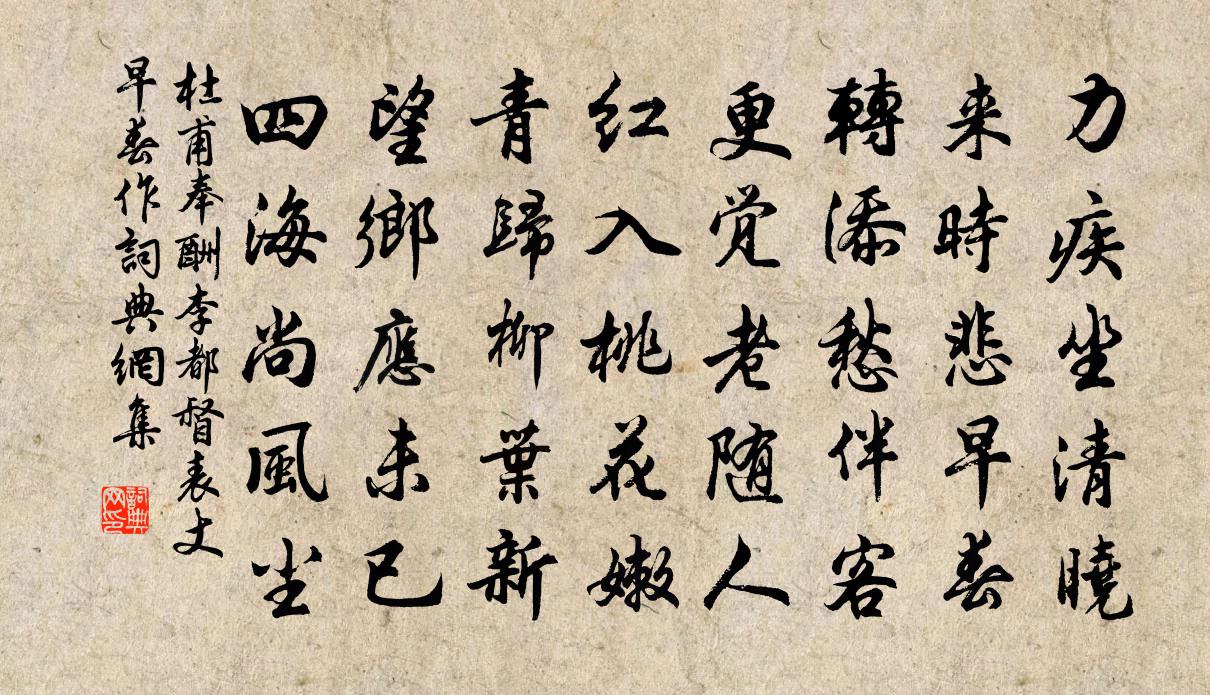 力疾坐清曉
来時悲早春
轉添愁伴客
更覚老随人
紅入桃花嫩
青歸柳葉新
望鄉應未已
四海尚風尘
杜甫奉酬李都督表丈
早春作詞典網集
詞典网印